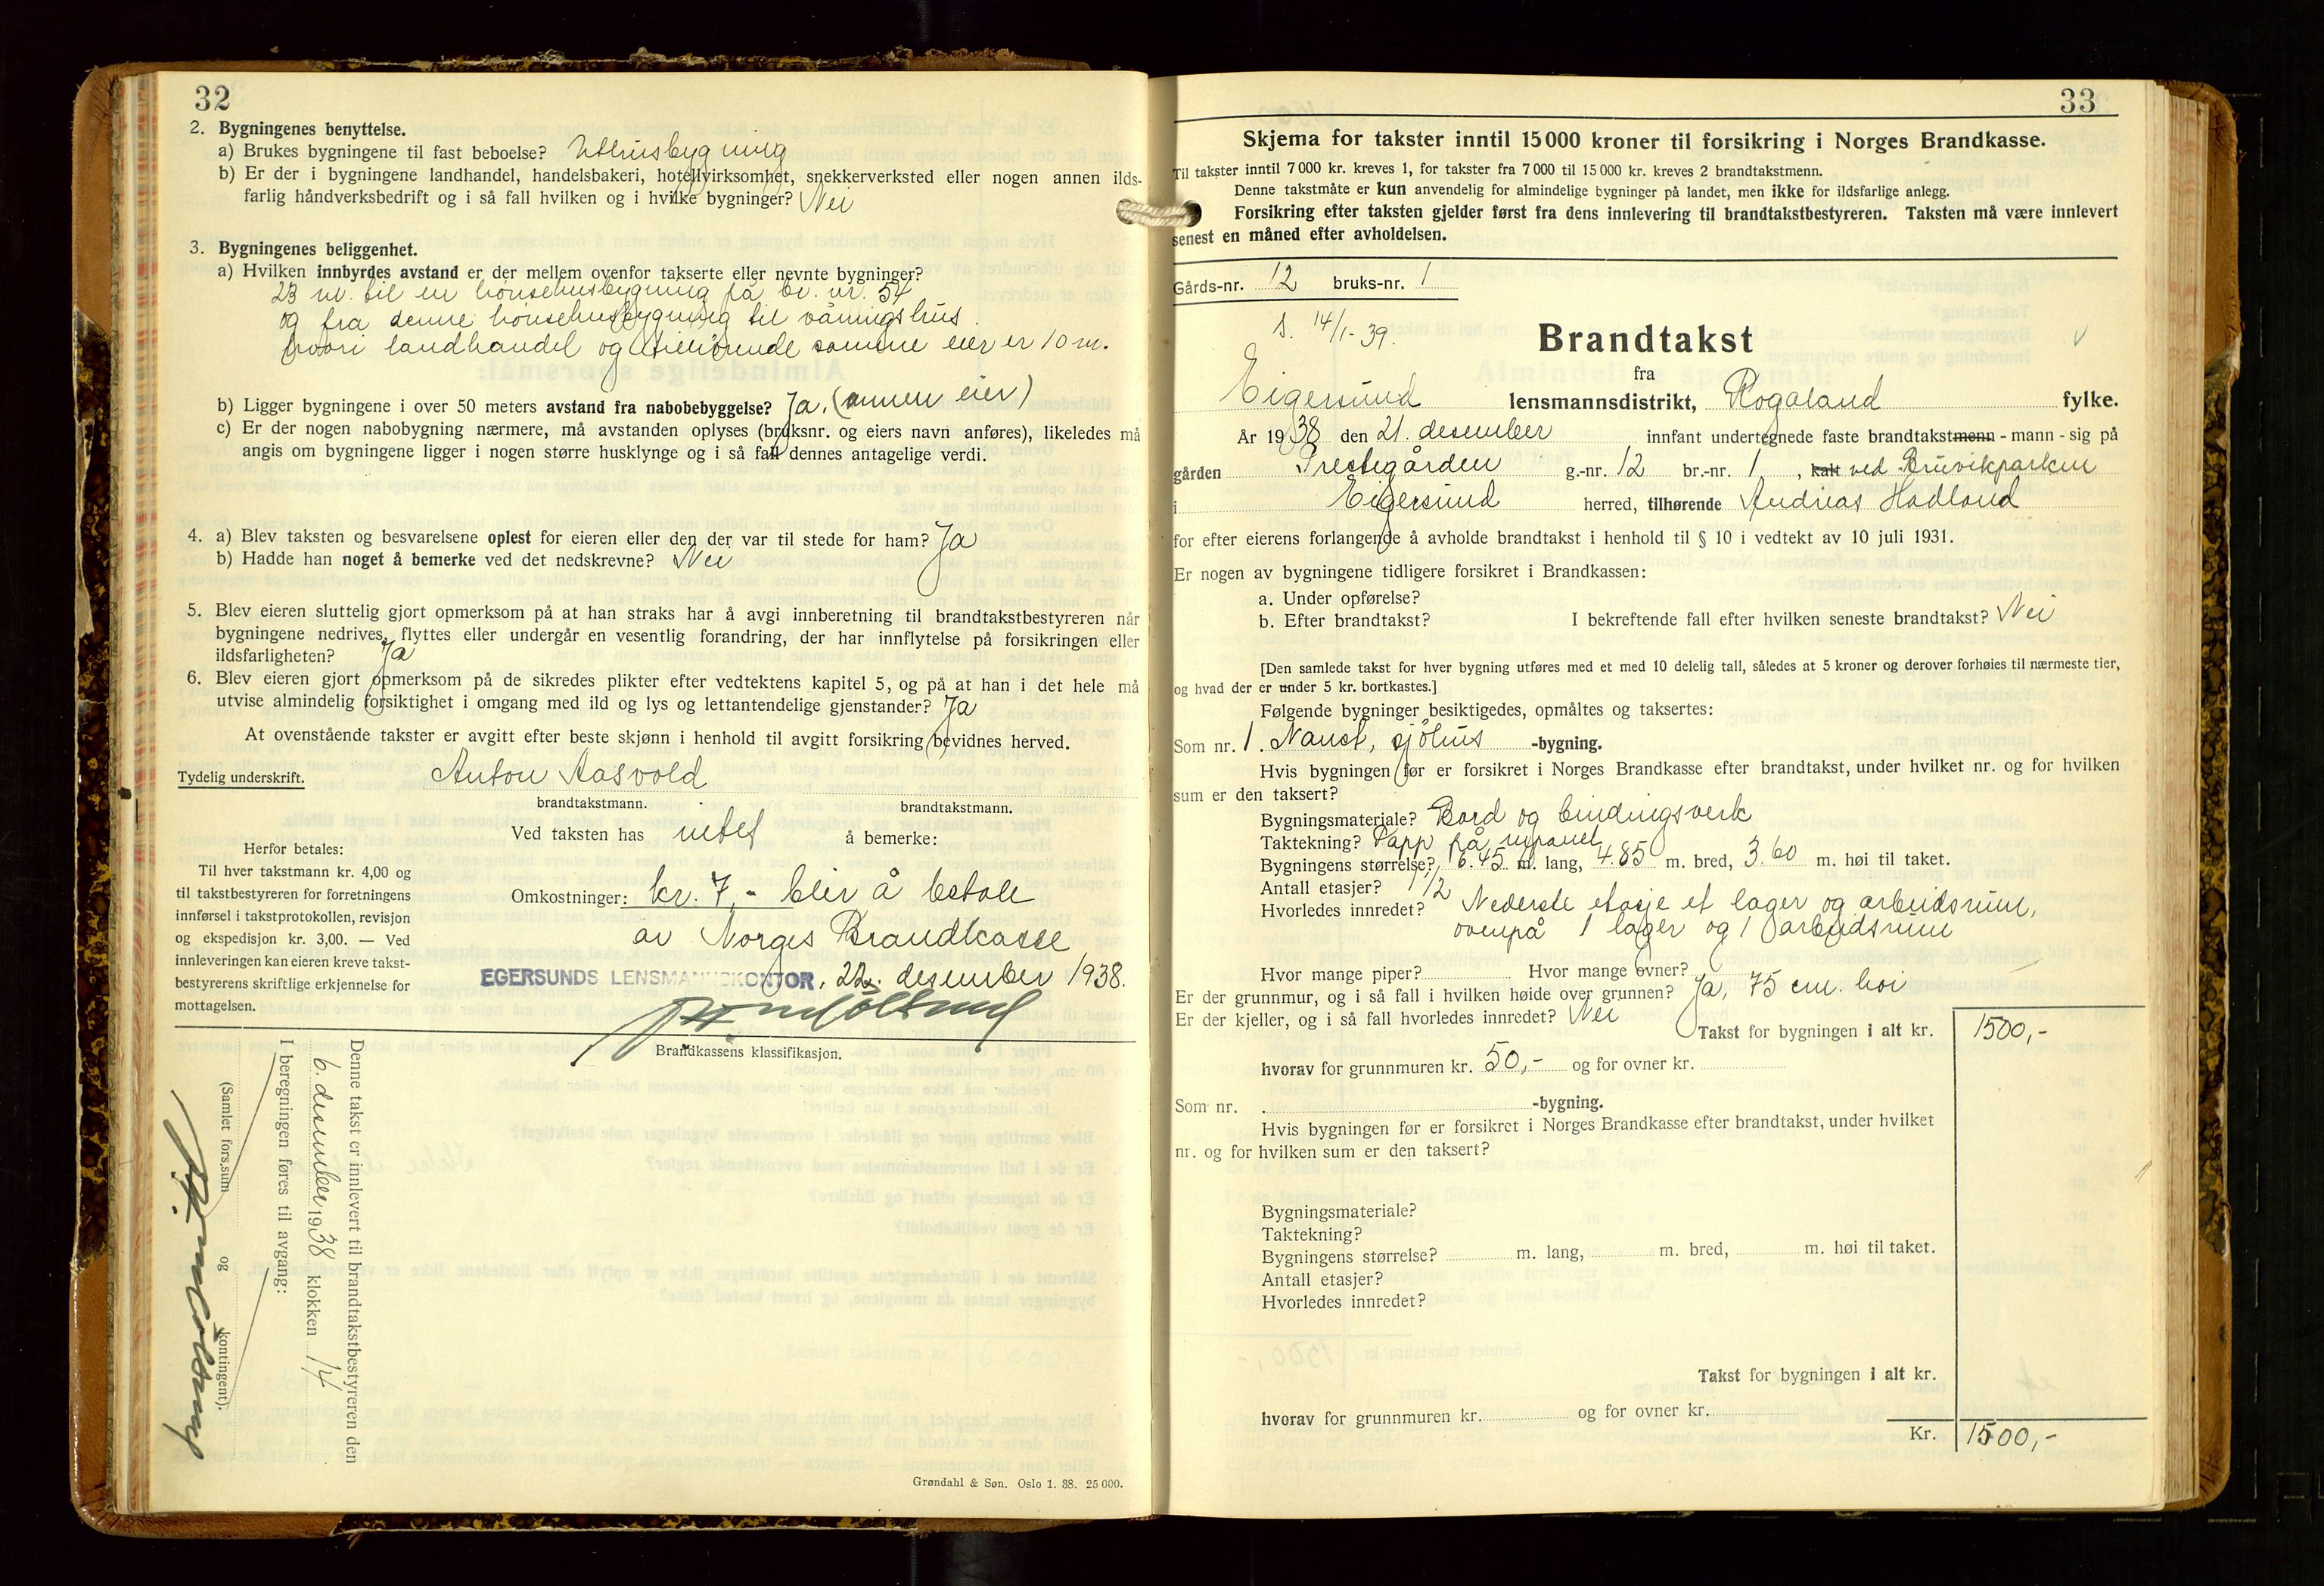 32
2. Bygningenes benyttelse.
a) Brukes bygningene til fast beboelse? Uthusbygning
b) Er der i bygningene landhandel, handelsbakeri, hotellvirksomhet, snekkerverksted eller nogen annen ilds-
farlig håndverksbedrift og i så fall hvilken og i hvilke bygninger? Nei
3. Bygningenes beliggenhet.
a) Hvilken innbyrdes avstand er der mellem ovenfor takserte eller nevnte bygninger?
23 m. til en hönsehusbygning på br. nr. 54
og fra denne hönsehusbygning til våningshus
hvori landhandel og tilhörende samme eier er 10 m.
b) Ligger bygningene i over 50 meters avstand fra nabobebyggelse? Ja, (annen eier)
c) Er der nogen nabobygning nærmere, må avstanden oplyses (bruksnr. og eiers navn anføres), likeledes må
angis om bygningene ligger i nogen større husklynge og i så fall dennes antagelige verdi.
4. a) Blev taksten og besvarelsene oplest for eieren eller den der var til stede for ham? Ja
b) Hadde han noget å bemerke ved det nedskrevne? Nei
5. Blev eieren sluttelig gjort opmerksom på at han straks har å avgi innberetning til brandtakstbestyreren når
bygningene nedrives, flyttes eller undergår en vesentlig forandring, der har innflytelse på forsikringen eller
ildsfarligheten? Ja
6. Blev eieren gjort opmerksom på de sikredes plikter efter vedtektens kapitel 5, og på at han i det hele må
utvise almindelig forsiktighet i omgang med ild og lys og lettantendelige gjenstander? Ja
At ovenstående takster er avgitt efter beste skjønn i henhold til avgitt forsikring bevidnes herved.
Tydelig underskrift. Anton Aasvold
brandtakstmann. brandtakstmann.
Ved taksten has intet å bemerke:
Herfor betales:
Til hver takstmann kr. 4,00 og
til takstbestyreren for forretningens
innførsel i takstprotokollen, revisjon
og ekspedisjon kr. 3,00. — Ved
innleveringen kan eieren kreve takst-
bestyrerens skriftlige erkjennelse for
mottagelsen.
Omkostninger: kr. 7,- blir å betale
av Norges Brandkasse
EGERSUNDS LENSMANNSKONTOR, 22. desember 1938.
Brandkassens klassifikasjon.
Denne takst er innlevert til brandtakstbestyreren den
6. desember 1938 klokken 14
I beregningen føres til avgang:
(Samlet fors.sum og kontingent).
Grøndahl & Søn. Oslo 1. 38. 25 000.
33
Skjema for takster inntil 15 000 kroner til forsikring i Norges Brandkasse.
Til takster inntil 7 000 kr. kreves 1, for takster fra 7 000 til 15 000 kr. kreves 2 brandtakstmenn.
Denne takstmåte er kun anvendelig for almindelige bygninger på landet, men ikke for ildsfarlige anlegg.
Forsikring efter taksten gjelder først fra dens innlevering til brandtakstbestyreren. Taksten må være innlevert
senest en måned efter avholdelsen.
Gårds-nr. 12 bruks-nr. 1
s. 14/1-39.
Brandtakst
fra
Eigersund lensmannsdistrikt, Rogaland fylke.
År 1938 den 21. desember innfant undertegnede faste brandtakstmenn - mann - sig på
gården Prestegården g.-nr. 12 br.-nr. 1, kalt ved Bruvikparken
i Eigersund herred, tilhørende Andreas Hadland
for efter eierens forlangende å avholde brandtakst i henhold til § 10 i vedtekt av 10 juli 1931.
Er nogen av bygningene tidligere forsikret i Brandkassen:
a. Under opførelse?
b. Efter brandtakst? I bekreftende fall efter hvilken seneste brandtakst? Nei
[Den samlede takst for hver bygning utføres med et med 10 delelig tall, således at 5 kroner og derover forhøies til nærmeste tier,
og hvad der er under 5 kr. bortkastes.]
Følgende bygninger besiktigedes, opmåltes og taksertes:
Som nr. 1. Naust, sjöhus -bygning.
Hvis bygningen før er forsikret i Norges Brandkasse efter brandtakst, under hvilket nr. og for hvilken
sum er den taksert?
Bygningsmateriale? Bord og bindingsverk
Taktekning? Papp på rupanel
Bygningens størrelse? 6.45 m. lang, 4.85 m. bred, 3.60 m. høi til taket.
Antall etasjer? 1 1/2
Hvorledes innredet? Nederste etasje et lager og arbeidsrum,
ovenpå 1 lager og 1 arbeidsrum
Hvor mange piper? Hvor mange ovner?
Er der grunnmur, og i så fall i hvilken høide over grunnen? Ja, 75 cm. hoi
Er der kjeller, og i så fall hvorledes innredet? Nei
Takst for bygningen i alt kr. 1500,-
hvorav for grunnmuren kr. 50,- og for ovner kr.
Som nr. -bygning.
Hvis bygningen før er forsikret i Norges Brandkasse efter brandtakst, under hvilket
nr. og for hvilken sum er den taksert?
Bygningsmateriale?
Taktekning?
Bygningens størrelse? m. lang, m. bred, m. høi til taket.
Antall etasjer?
Hvorledes innredet?
Takst for bygningen i alt kr.
hvorav for grunnmuren kr. og for ovner kr.
Kr. 1500,-